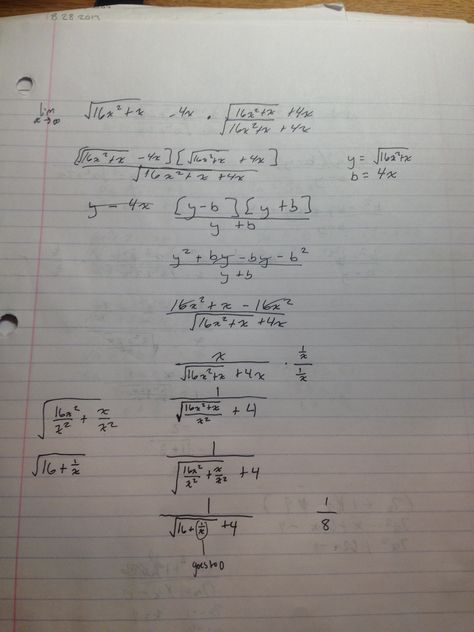 8.28.2017
lim x→∞ √(16x²+x) - 4x · (√(16x²+x) + 4x)/(√(16x²+x) + 4x)
[√(16x²+x) - 4x][√(16x²+x) + 4x]/(√(16x²+x) + 4x) y = √(16x²+x)
b = 4x
y - 4x [y-b][y+b]/(y+b)
(y² + by - by - b²)/(y+b)
(16x²+x - 16x²)/(√(16x²+x) + 4x)
x/(√(16x²+x) + 4x) · (1/x)/(1/x)
1/(√((16x²+x)/x²) + 4)
√(16x²/x² + x/x²)
1/(√(16x²/x² + x/x²) + 4)
√(16 + 1/x)
1/(√(16 + 1/x) + 4) 1/8
goes to 0